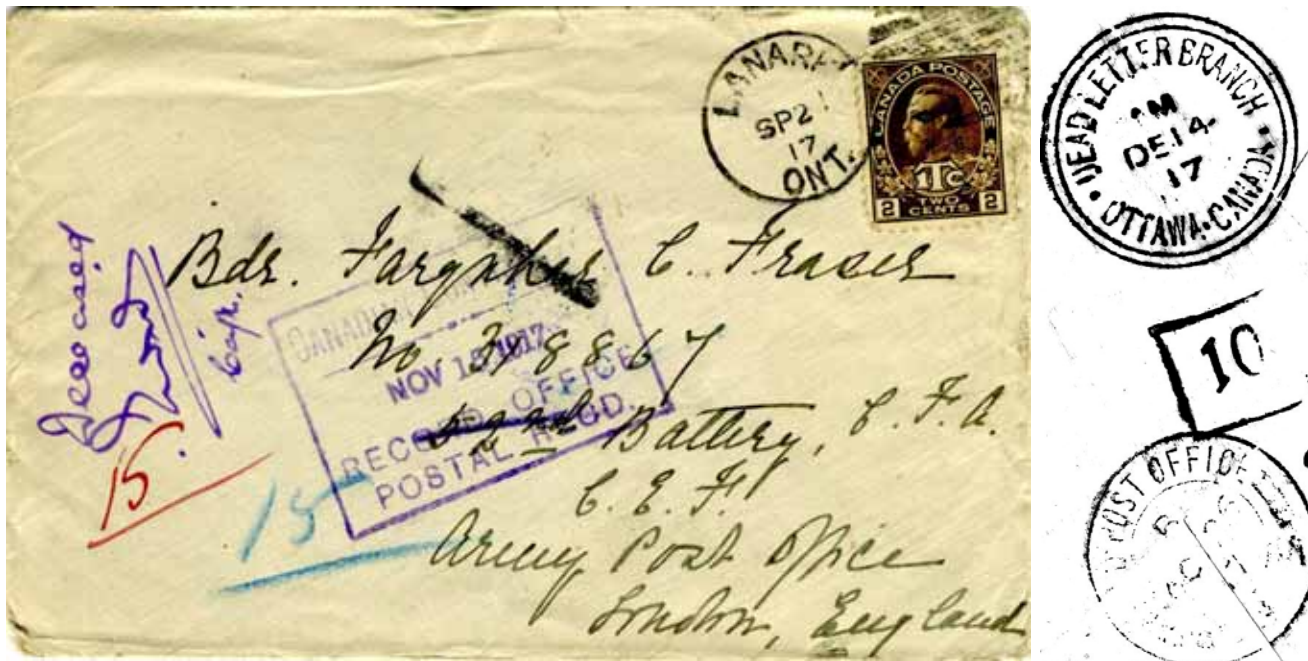 LANARK
SP 21
17
ONT.
CANADA POSTAGE
1TC
2 TWO CENTS 2
Bdr. Farquhar C. Fraser
No. 318867
Battery, C. F. A.
C. E. F.
Army Post Office
London, England
Deceased
Capt.
15.
15
NOV 1917
RECORD OFFICE
POSTAL REGD.
DEAD LETTER BRANCH
AM
DE 14
17
OTTAWA · CANADA
10
POST OFFICE